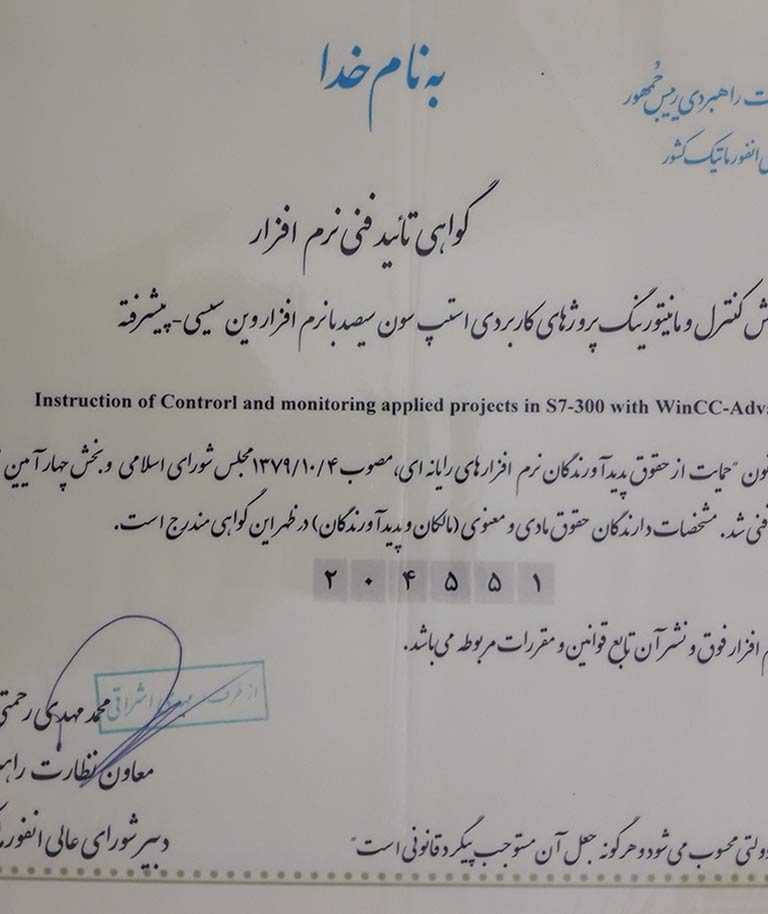 به نام خدا
راهبردی رییس جمهور
انفورماتیک کشور
گواهی تائید فنی نرم افزار
کنترل و مانیتورینگ پروژهای کاربردی استپ سون سیصد با نرم افزار وین سیسی-پیشرفته
Instruction of Controrl and monitoring applied projects in S7-300 with WinCC-Adv
"حمایت از حقوق پدیدآورندگان نرم افزارهای رایانه ای، مصوب ۱۳۷۹/۱۰/۴ مجلس شورای اسلامی و بخش چهار آیین
فنی شد. مشخصات دارندگان حقوق مادی و معنوی (مالکان و پدیدآورندگان) در ظهر این گواهی مندرج است.
۲۰۴۵۵۱
افزار فوق و نشر آن تابع قوانین و مقررات مربوطه می باشد.
از طرف مهدی اشراقی
محمد مهدی رحمتی
معاون نظارت
دبیر شورای عالی
دولتی محسوب می شود و هرگونه جعل آن مستوجب پیگرد قانونی است"